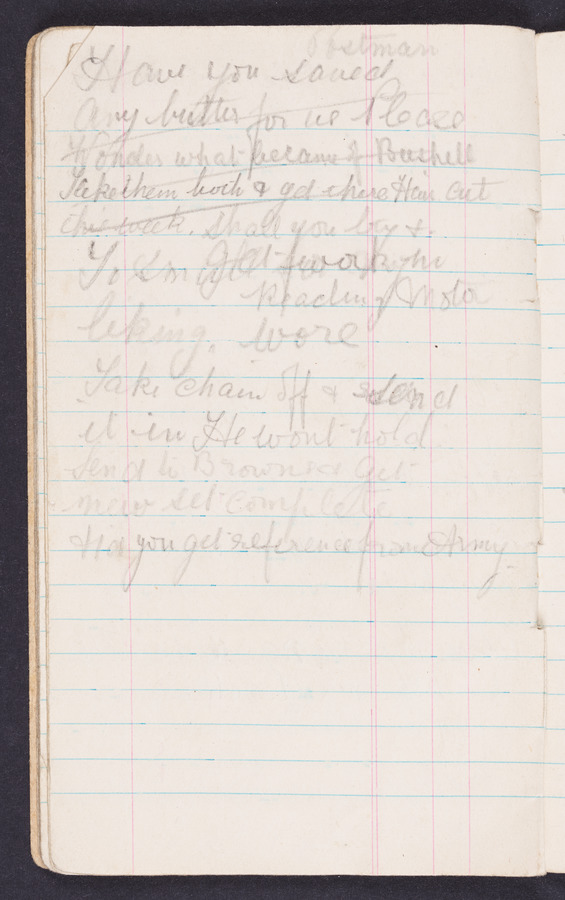 Postman
Have you saved
any butter for us Please
Wonder what became of Bushell
Take them both & get there Hair cut
this week. Shall you try &
get work in
Reading Motor
liking. wore
Take chain off & send
it in He wont hold
Send to Browns & Get
new set complete
Did you get reference from Army